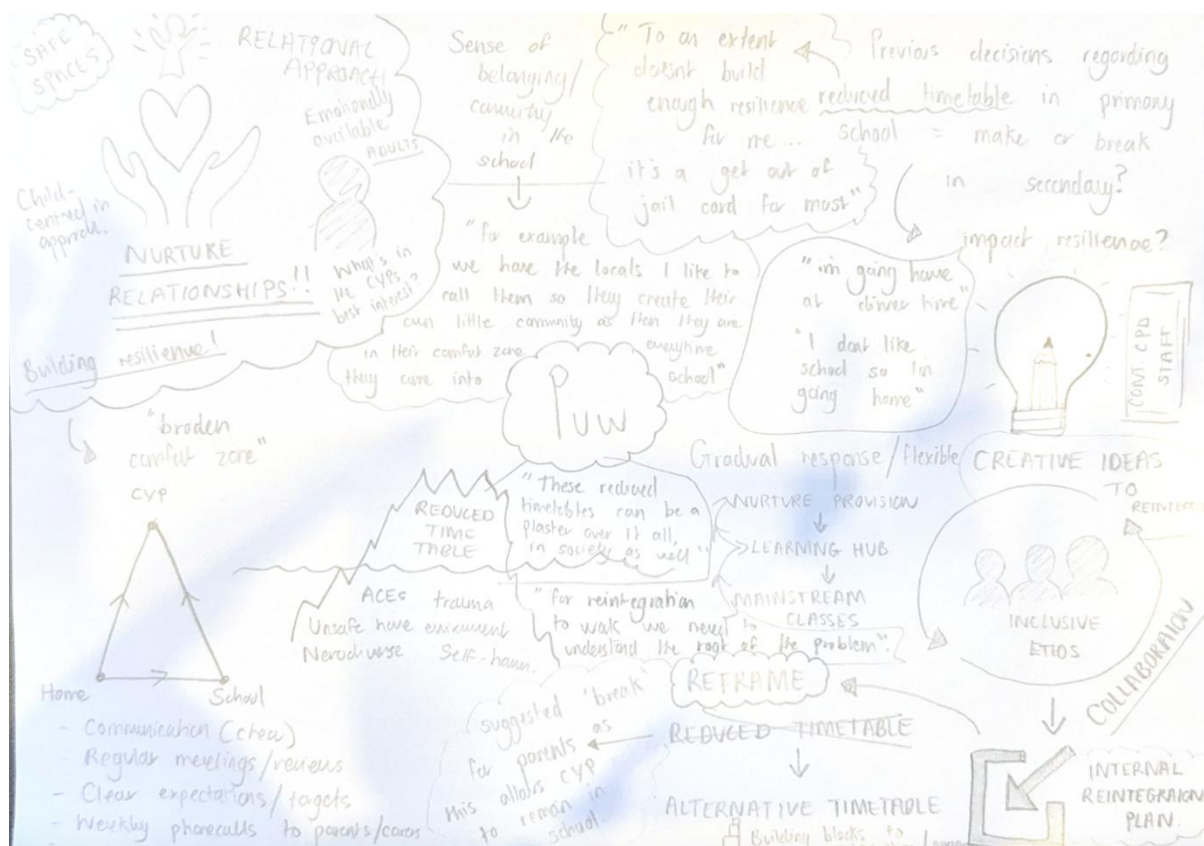 SAFE
SPACES
RELATIONAL
APPROACH
Emotionally
available
ADULTS
Child-
centred in
approach.
NURTURE
RELATIONSHIPS!!
What's in
the CYPs
best interest?
Building resilience!
"broden
comfort zone"
CYP
Home
School
- Communication (chew)
- Regular meetings/reviews
- Clear expectations/targets
- Weekly phonecalls to parents/carers
Sense of
belonging/
community
in the
school
"for example
we have the locals I like to
call them so they create their
own little community as then they are
in their comfort zone everytime
they come into school"
"To an extent
doesnt build
enough resilience
for me...
it's a get out of
jail card for most"
Previous decisions regarding
reduced timetable in primary
school = make or break
in secondary?
impact resilience?
"im going home
at dinner time"
"I dont like
school so im
going home"
CONT. CPD
STAFF
REDUCED
TIME
TABLE
ACEs trauma
Unsafe home
Self-harm.
"These reduced
timetables can be a
plaster over it all,
in society as well"
"for reintegration
to work we need to
understand the root of the problem".
Gradual response/flexible
NURTURE PROVISION
LEARNING HUB
MAINSTREAM
CLASSES
CREATIVE IDEAS
TO
INCLUSIVE
ETHOS
COLLABORATION
REFRAME
REDUCED TIMETABLE
suggested 'break'
as
for parents
this allows CYP
to remain in
school.
ALTERNATIVE TIMETABLE
Building blocks to
INTERNAL
REINTEGRAION
PLAN.